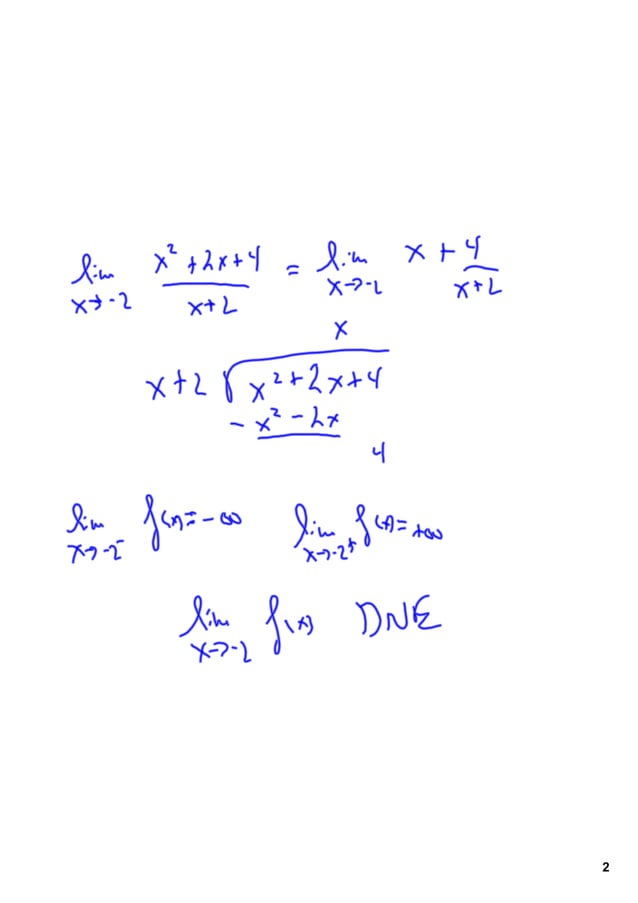 lim x→-2 (x² + 2x + 4)/(x + 2) = lim x→-2 x + 4/(x + 2)
x
x + 2 √(x² + 2x + 4)
- x² - 2x
4
lim x→-2⁻ f(x) = -∞ lim x→-2⁺ f(x) = +∞
lim x→-2 f(x) DNE
2